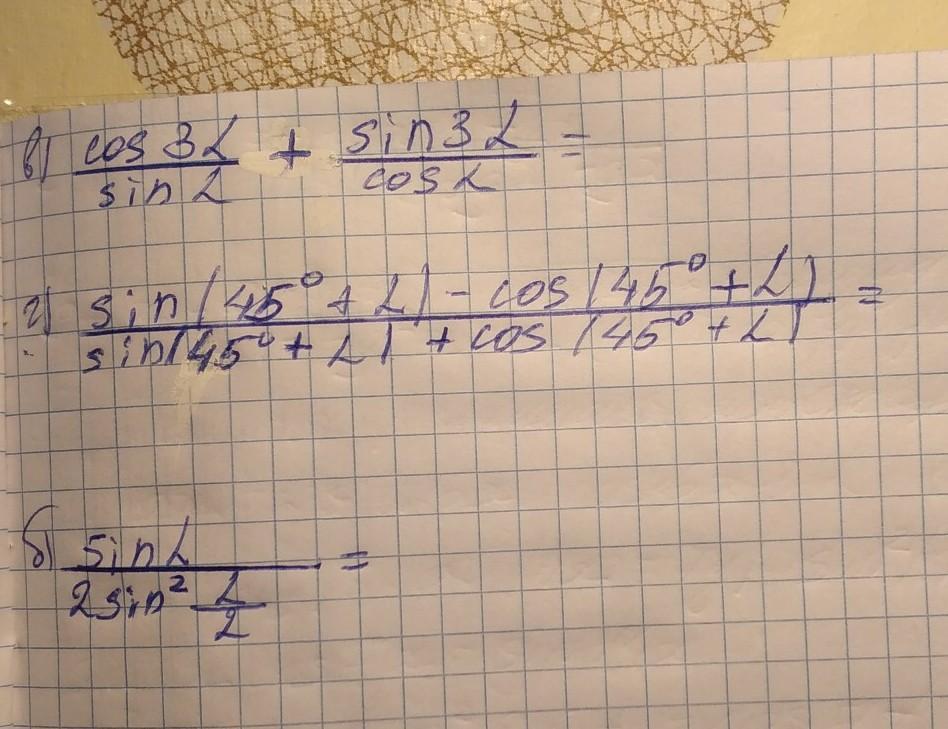 в) cos 3α / sin α + sin 3α / cos α =
г) sin(45° + α) - cos(45° + α) / sin(45° + α) + cos(45° + α) =
б) sin α / 2 sin² α/2 =